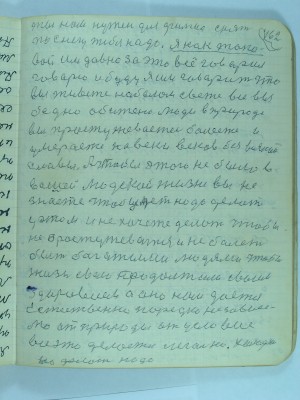 462
ты нам нужен для зимних снят
по снегу чтобы надо. Я как тако-
вой им давно за это всё говорил
говорю и буду я им говорить что
вы живите на белом свете все вы
бедно обижено люди в природе
вы простуживаетесь болеете и
умираете на веки веков без всякой
славы. А чтобы этого не было в
вашей людской жизни вы не
знаете что будет надо делать
у этом и не хочете делать чтобы
не простуживатся и не болеть
быть богатыми людями чтобы
жизнь свою продолжить своим
здоровием а оно нам дается
естественно порядке независи-
мо от природы от него
все это делается легально.
его делать надо